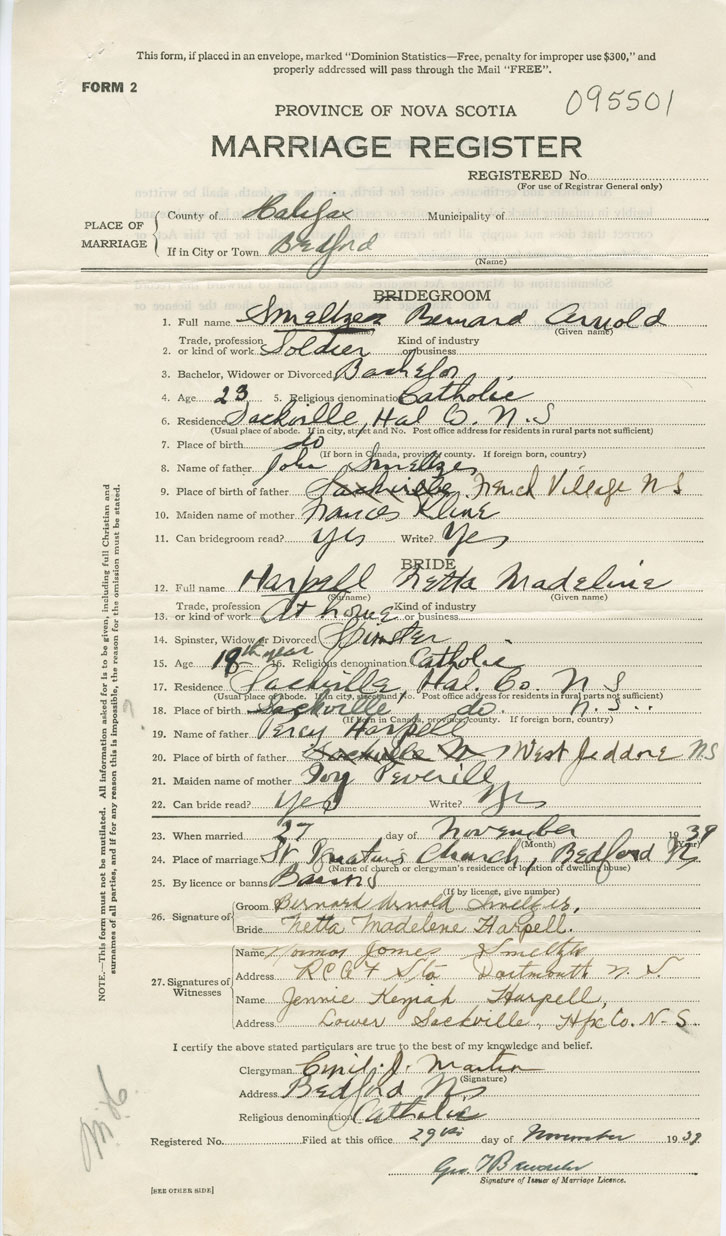 This form, if placed in an envelope, marked "Dominion Statistics—Free, penalty for improper use $300," and
properly addressed will pass through the Mail "FREE".
FORM 2
095501
PROVINCE OF NOVA SCOTIA
MARRIAGE REGISTER
REGISTERED No.
(For use of Registrar General only)
PLACE OF MARRIAGE
County of Halifax Municipality of
If in City or Town Bedford
(Name)
BRIDEGROOM
1. Full name Smeltzer Bernard Arnold
(Given name)
2. Trade, profession or kind of work Soldier Kind of industry or business
3. Bachelor, Widower or Divorced Bachelor
4. Age 23 5. Religious denomination Catholic
6. Residence Sackville, Hal Co. N.S
(Usual place of abode. If in city, street and No. Post office address for residents in rural parts not sufficient)
7. Place of birth do
(If born in Canada, province, county. If foreign born, country)
8. Name of father John Smeltzer
9. Place of birth of father Sackville French Village NS
10. Maiden name of mother Frances Kline
11. Can bridegroom read? yes Write? Yes
BRIDE
12. Full name Harpell Netta Madeline
(Surname) (Given name)
13. Trade, profession or kind of work At home Kind of industry or business
14. Spinster, Widow or Divorced Spinster
15. Age 18th year 16. Religious denomination Catholic
17. Residence Sackville, Hal. Co. N S
(Usual place of abode. If in city, street and No. Post office address for residents in rural parts not sufficient)
18. Place of birth Sackville do. N.S.
(If born in Canada, province, county. If foreign born, country)
19. Name of father Percy Harpell
20. Place of birth of father Sackville West Jeddore NS
21. Maiden name of mother Ivy Peverill
22. Can bride read? Yes Write? Yes
23. When married 27 day of November 1939
(Month) (Year)
24. Place of marriage St Ignatius Church, Bedford NS
(Name of church or clergyman's residence or location of dwelling house)
25. By licence or banns Banns
(If by licence, give number)
26. Signature of
Groom Bernard Arnold Smeltzer,
Bride Netta Madelene Harpell.
27. Signatures of Witnesses
Name James Smeltzer
Address RCAF Sta Dartmouth N.S.
Name Jennie Keziah Harpell,
Address Lower Sackville, Hfx Co. N.S.
I certify the above stated particulars are true to the best of my knowledge and belief.
Clergyman Cyril J. Martin
(Signature)
Address Bedford NS
Religious denomination Catholic
Registered No. Filed at this office 29th day of November 1939
Geo.
Signature of Issuer of Marriage Licence.
[SEE OTHER SIDE]
NOTE.—This form must not be mutilated. All information asked for is to be given, including full Christian and
surnames of all parties, and if for any reason this is impossible, the reason for the omission must be stated.